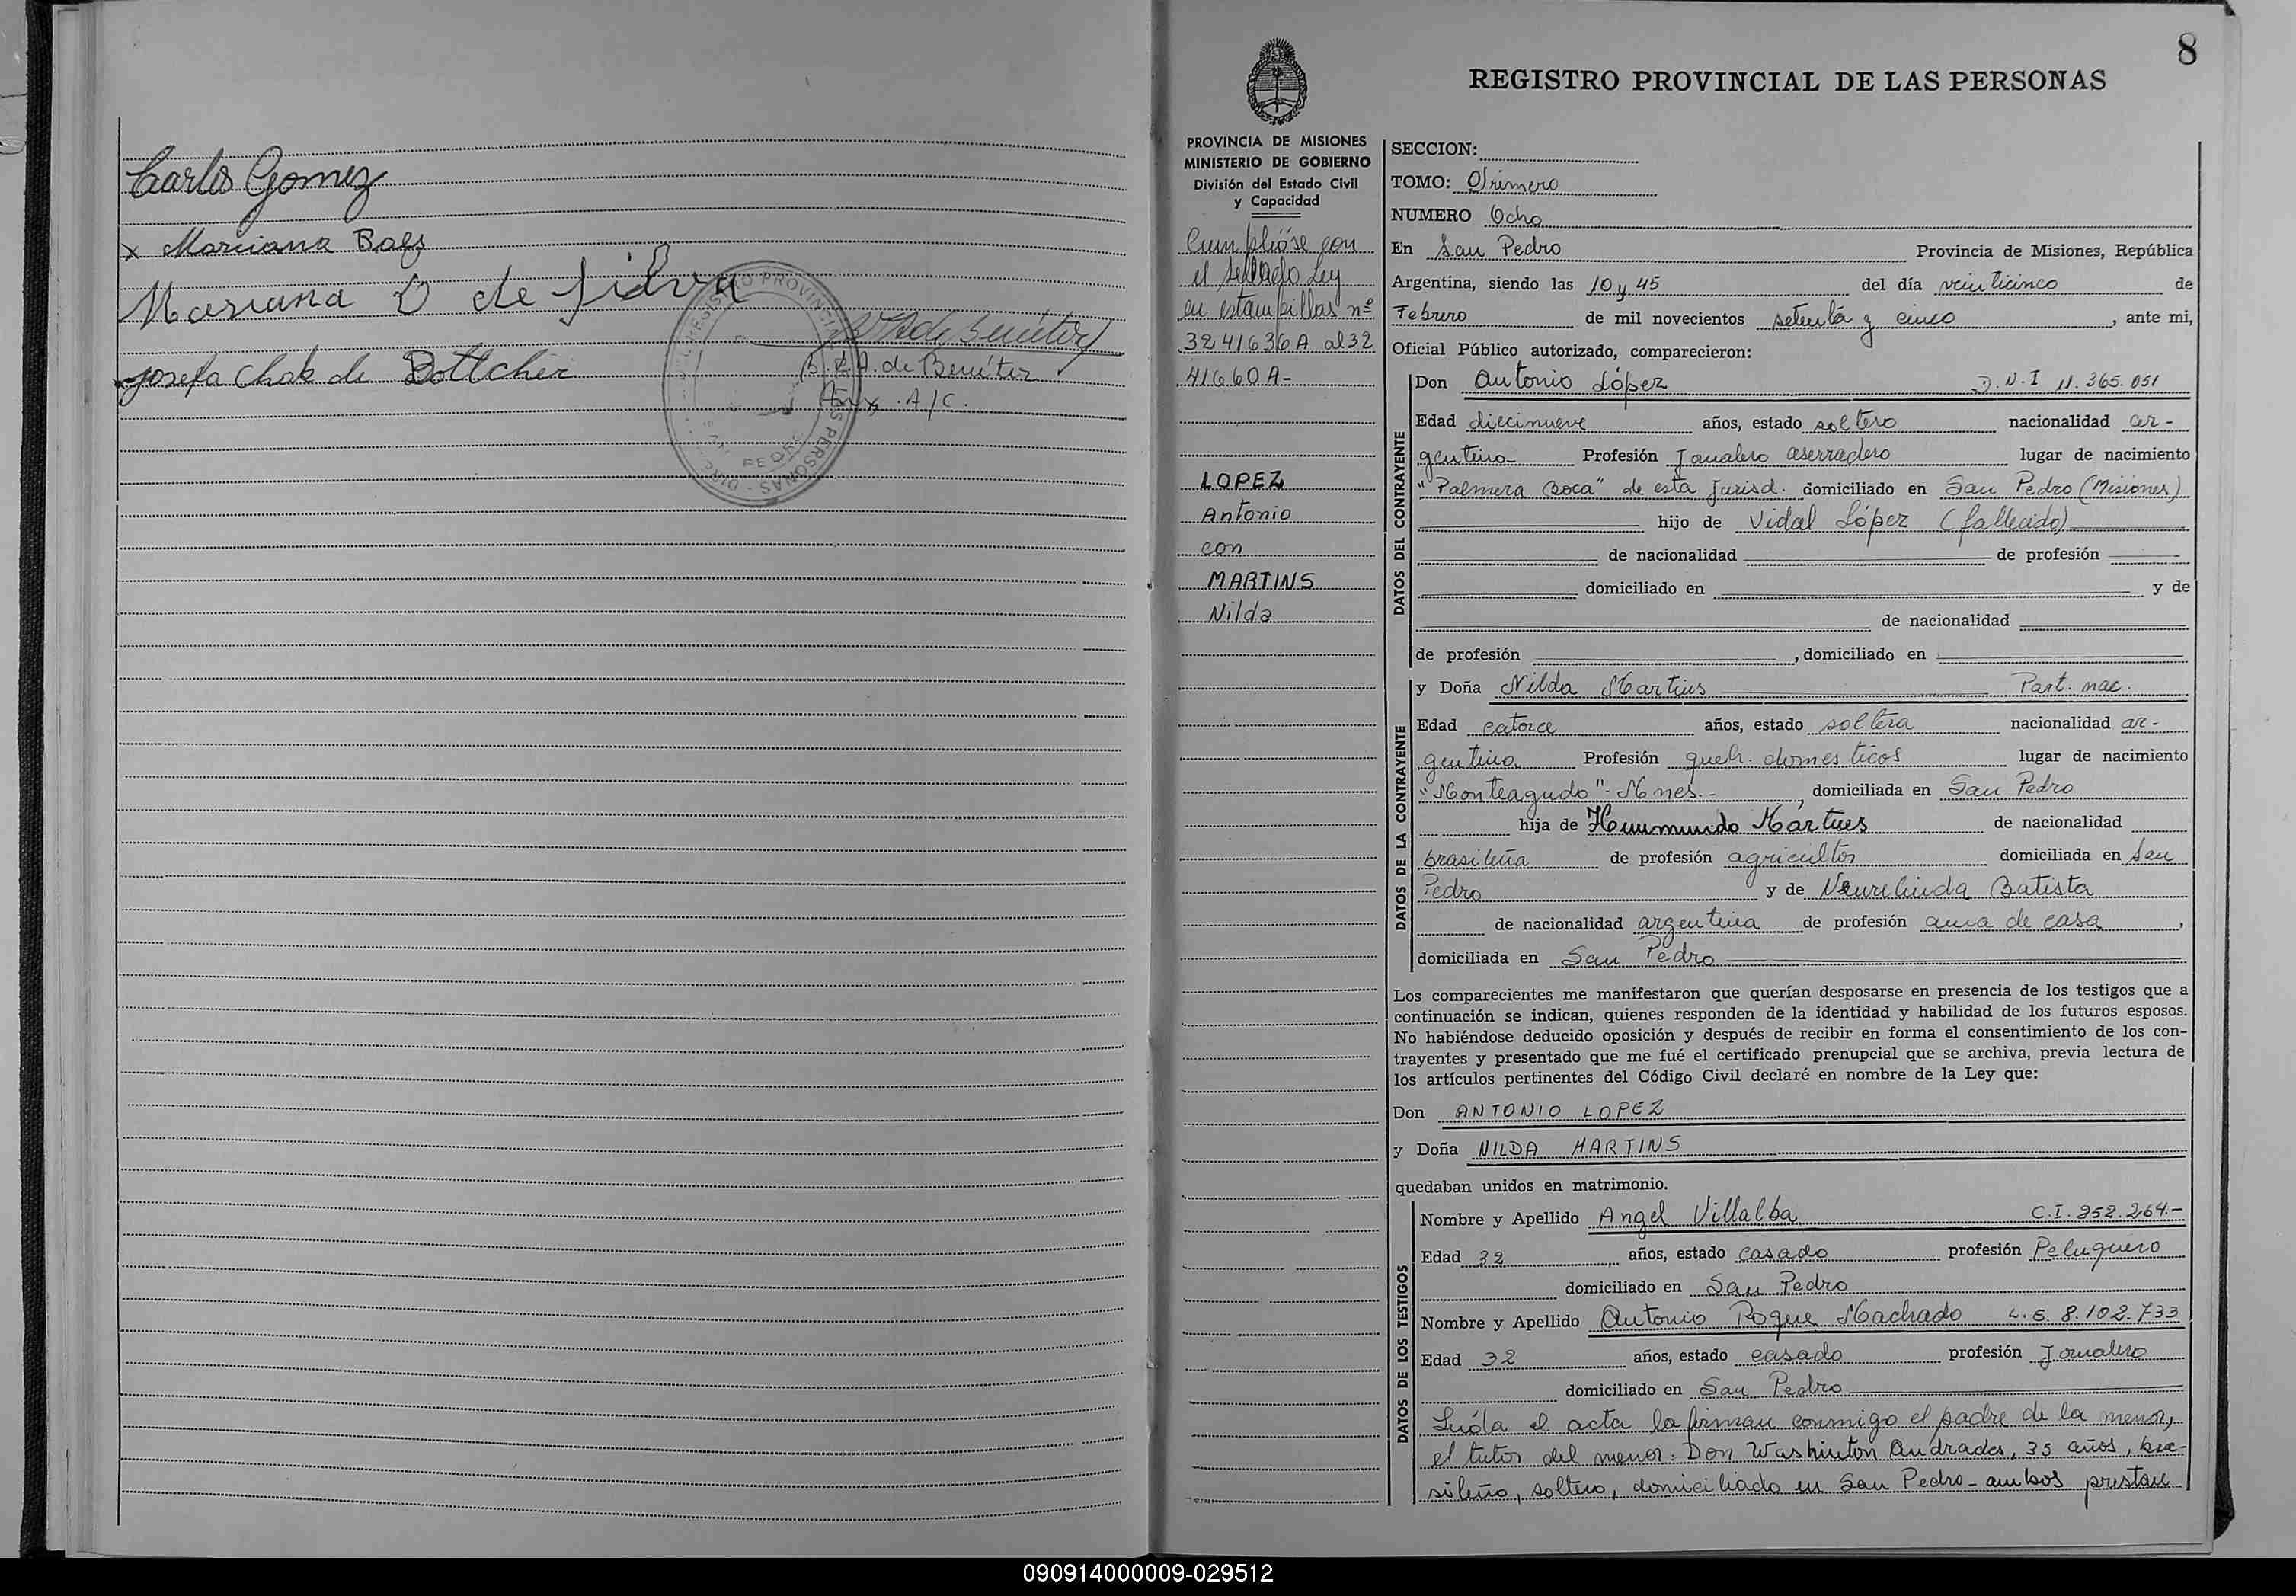 Carlos Gomez
x Marciana Baez
Mariana D de Silva
Josefa Chok de Bottcher
de Benítez
A. de Benítez
Aux. A/C.
REGISTRO PROVINCIAL
PERSONAS
8
REGISTRO PROVINCIAL DE LAS PERSONAS
PROVINCIA DE MISIONES
MINISTERIO DE GOBIERNO
División del Estado Civil
y Capacidad
Cumplióse con
el sellado Ley
en estampillas nº
3241636A al 32
41660A-
LOPEZ
Antonio
con
MARTINS
Nilda
SECCION:
TOMO: Primero
NUMERO Ocho
En San Pedro Provincia de Misiones, República
Argentina, siendo las 10 y 45 del día veinticinco de
Febrero de mil novecientos setenta y cinco, ante mi,
Oficial Público autorizado, comparecieron:
DATOS DEL CONTRAYENTE
Don Antonio López D.N.I 11.365.051
Edad diecinueve años, estado soltero nacionalidad ar-
gentino- Profesión Jornalero aserradero lugar de nacimiento
"Palmera Boca" de esta Jurisd. domiciliado en San Pedro (Misiones)
hijo de Vidal López (fallecido)
de nacionalidad de profesión
domiciliado en y de
de nacionalidad
de profesión , domiciliado en
DATOS DE LA CONTRAYENTE
y Doña Nilda Martins Part. nac.
Edad catorce años, estado soltera nacionalidad ar-
gentina Profesión queh. domesticos lugar de nacimiento
"Monteagudo" - Mnes.- , domiciliada en San Pedro
hija de Martins de nacionalidad
brasileña de profesión agricultor domiciliada en San
Pedro y de Batista
de nacionalidad argentina de profesión ama de casa,
domiciliada en San Pedro
Los comparecientes me manifestaron que querían desposarse en presencia de los testigos que a
continuación se indican, quienes responden de la identidad y habilidad de los futuros esposos.
No habiéndose deducido oposición y después de recibir en forma el consentimiento de los con-
trayentes y presentado que me fué el certificado prenupcial que se archiva, previa lectura de
los artículos pertinentes del Código Civil declaré en nombre de la Ley que:
Don ANTONIO LOPEZ
y Doña NILDA MARTINS
quedaban unidos en matrimonio.
DATOS DE LOS TESTIGOS
Nombre y Apellido Angel Villalba C.I. 252.264.-
Edad 32 años, estado casado profesión Peluquero
domiciliado en San Pedro
Nombre y Apellido Antonio Roque Machado L.E. 8.102.733
Edad 32 años, estado casado profesión Jornalero
domiciliado en San Pedro
Leída el acta la firman conmigo el padre de la menor,
el tutor del menor: Don Washinton Andrades, 35 años, bra-
sileño, soltero, domiciliado en San Pedro - ambos prestan
090914000009-029512